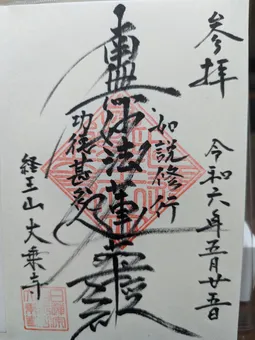 参拝
令和六年五月廿五日
如説修行
南無妙法蓮華経
功徳甚多
経王山大乗寺